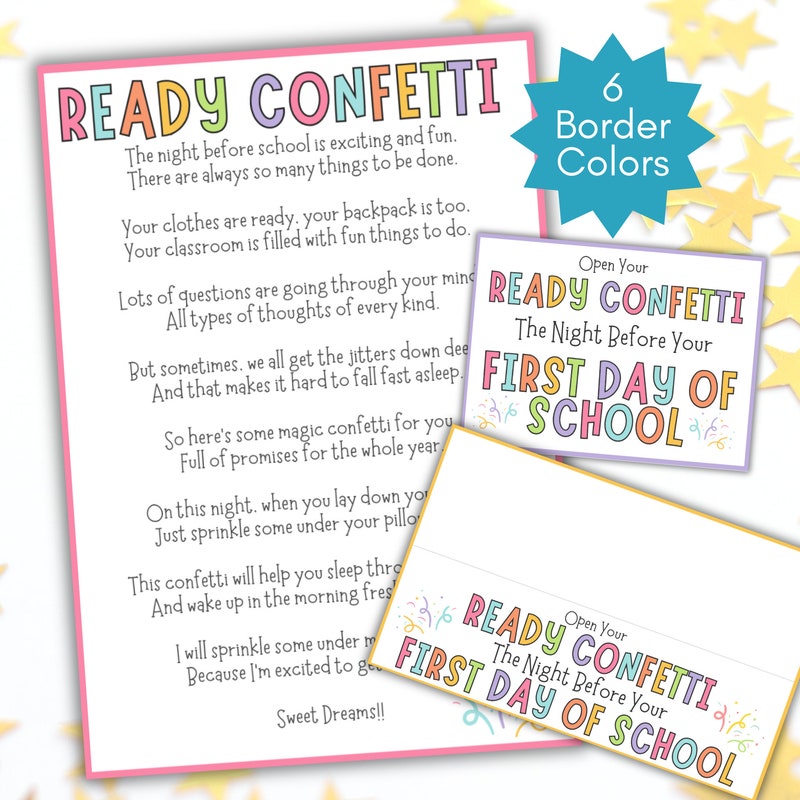 READY CONFETTI
The night before school is exciting and fun.
There are always so many things to be done.
Your clothes are ready, your backpack is too.
Your classroom is filled with fun things to do.
Lots of questions are going through your mind
All types of thoughts of every kind.
But sometimes, we all get the jitters down
And that makes it hard to fall fast asleep.
So here's some magic confetti for you
Full of promises for the whole year.
On this night, when you lay down
Just sprinkle some under your
This confetti will help you sleep
And wake up in the morning
I will sprinkle some under
Because I'm excited to
Sweet Dreams!!
6
Border
Colors
Open Your
READY CONFETTI
The Night Before Your
FIRST DAY OF
SCHOOL
Open Your
READY CONFETTI
The Night Before Your
FIRST DAY OF SCHOOL